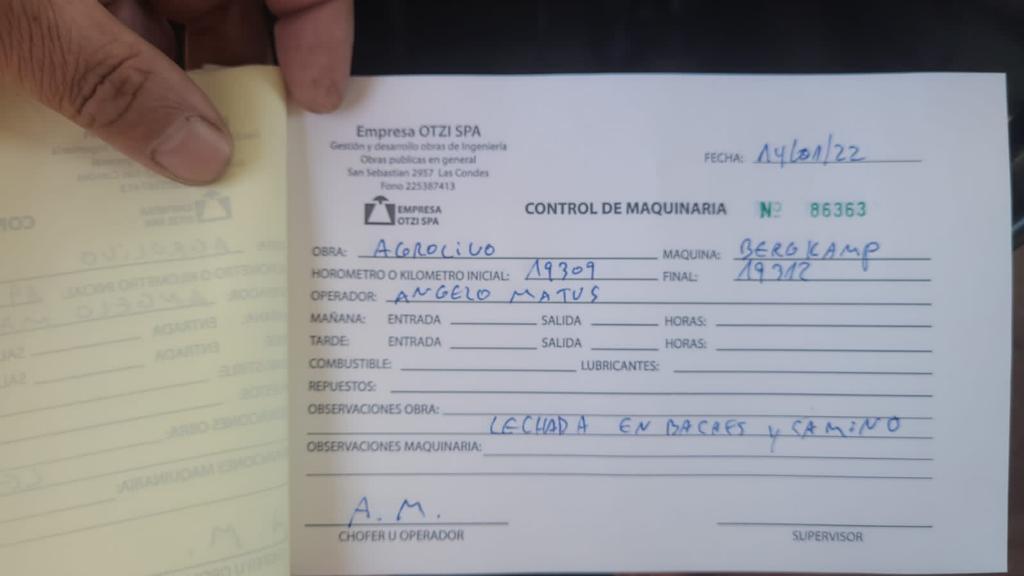 Empresa OTZI SPA
Gestión y desarrollo obras de Ingeniería
Obras publicas en general
San Sebastian 2957 Las Condes
Fono 225387413
EMPRESA
OTZI SPA
FECHA: 14/01/22
CONTROL DE MAQUINARIA Nº 86363
OBRA: AGROLIVO MAQUINA: BERGKAMP
HOROMETRO O KILOMETRO INICIAL: 19309 FINAL: 19312
OPERADOR: ANGELO MATUS
MAÑANA: ENTRADA SALIDA HORAS:
TARDE: ENTRADA SALIDA HORAS:
COMBUSTIBLE: LUBRICANTES:
REPUESTOS:
OBSERVACIONES OBRA:
LECHADA EN BACHES y CAMINO
OBSERVACIONES MAQUINARIA:
A. M.
CHOFER U OPERADOR SUPERVISOR